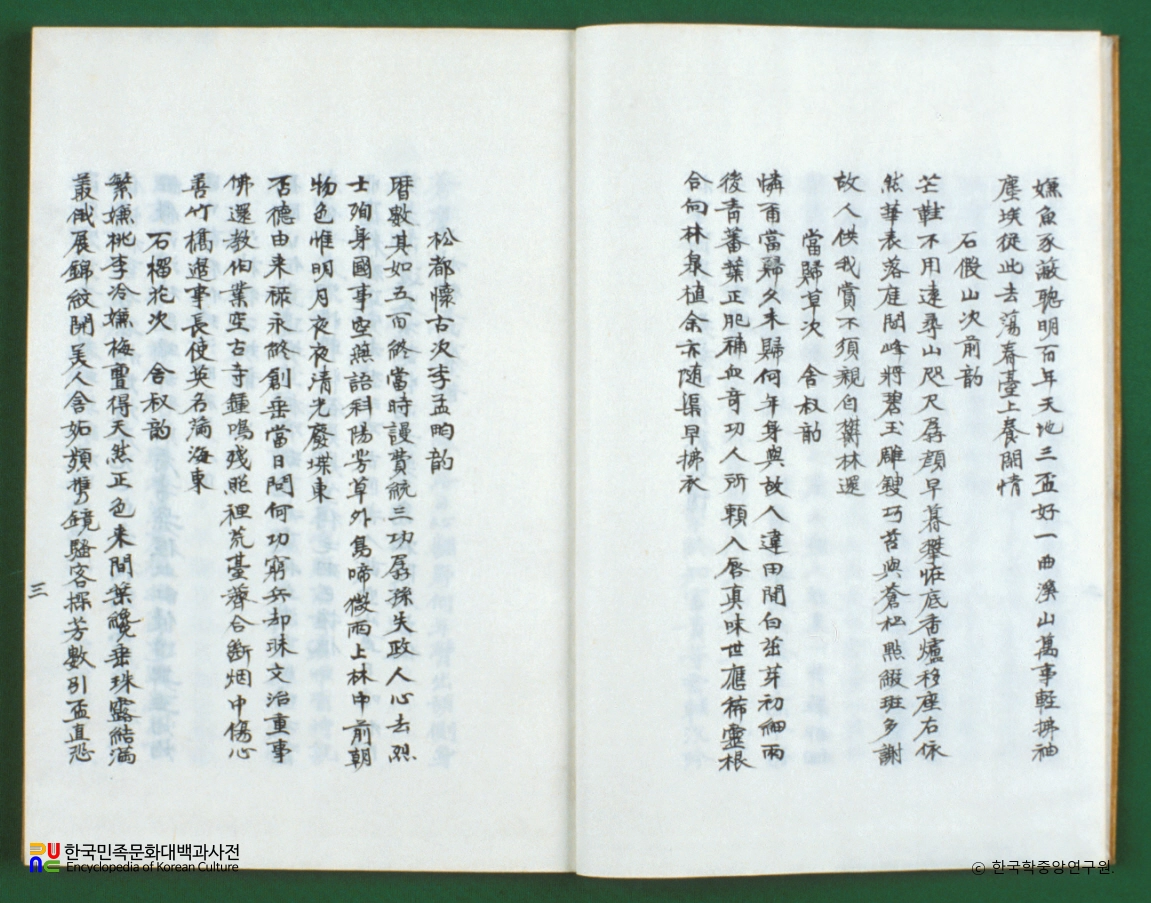 嫌魚豕敲聰明百年天地三盃好一曲溪山萬事軽拂袖
塵埃從此去蕩春臺上養閑情
石假山次前韵
芒鞋不用遠尋山咫尺孱顔早暮攀恠底香爐移座右依
然華表落庭間峰將碧玉雕鎪巧苔與蒼松點綴斑多謝
故人供我賞不須親自欝林還
當歸草次舍叔韵
憐甭當歸久未歸何年身與故人違田間白茁芽初細雨
後青蕃葉正肥補血奇功人所頼入唇真味世應稀靈根
合向林泉植余亦随渠早拂衣
松都懷古次李孟畇韵
曆數其如五百終當時謾賞統三功孱孫失政人心去烈
士殉身國事空無語斜陽芳草外鳥啼微雨上林中前朝
物色惟明月夜夜清光廢堞東
否德由来祿永終創垂當日問何功窮兵却昧文治重事
佛還教伯業空古寺鍾鳴殘照裡荒臺薺合断烟中傷心
善竹橋邊事長使英名滿海東
石榴花次舍叔韵
繁嫌桃李冷嫌梅亶得天然正色来間葉纔垂珠露結滿
叢俄展錦紋開美人含妬頻携鏡騷客探芳數引盃直恐
三
한국민족문화대백과사전
Encyclopedia of Korean Culture
ⓒ 한국학중앙연구원.